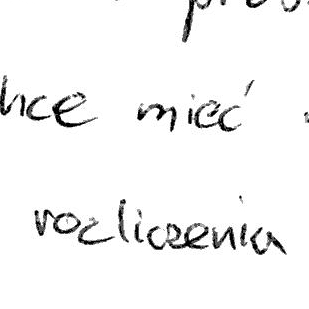 hce mieć
rozliczenia